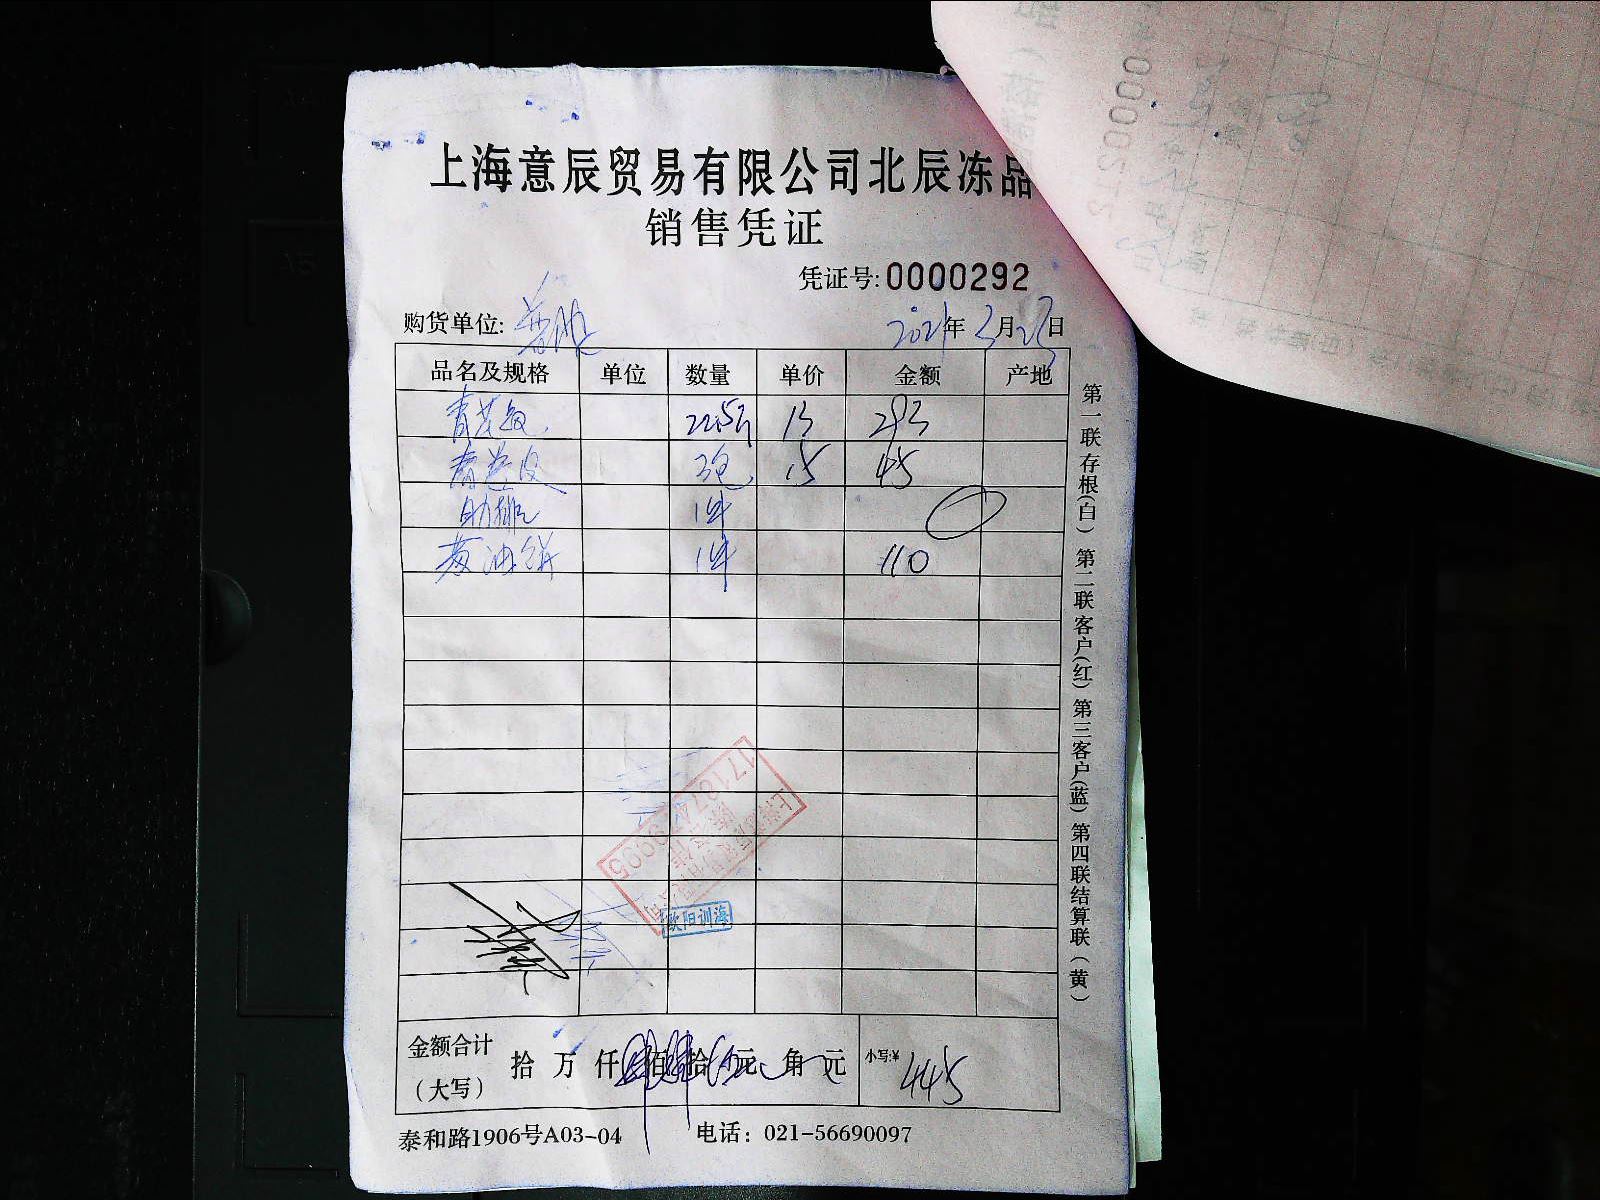 上海意辰贸易有限公司北辰冻品
销售凭证
凭证号:0000292
购货单位: 2021年3月25日
品名及规格 单位 数量 单价 金额 产地
22.5斤 13 293
春卷皮 3包 15 45
助排 1件
葱油饼 1件 110
欧阳训海
金额合计(大写) 拾 万 仟 肆佰肆拾伍元 角 元 小写:¥ 445
泰和路1906号A03-04 电话：021-56690097
第一联存根(白) 第二联客户(红) 第三客户(蓝) 第四联结算联(黄)